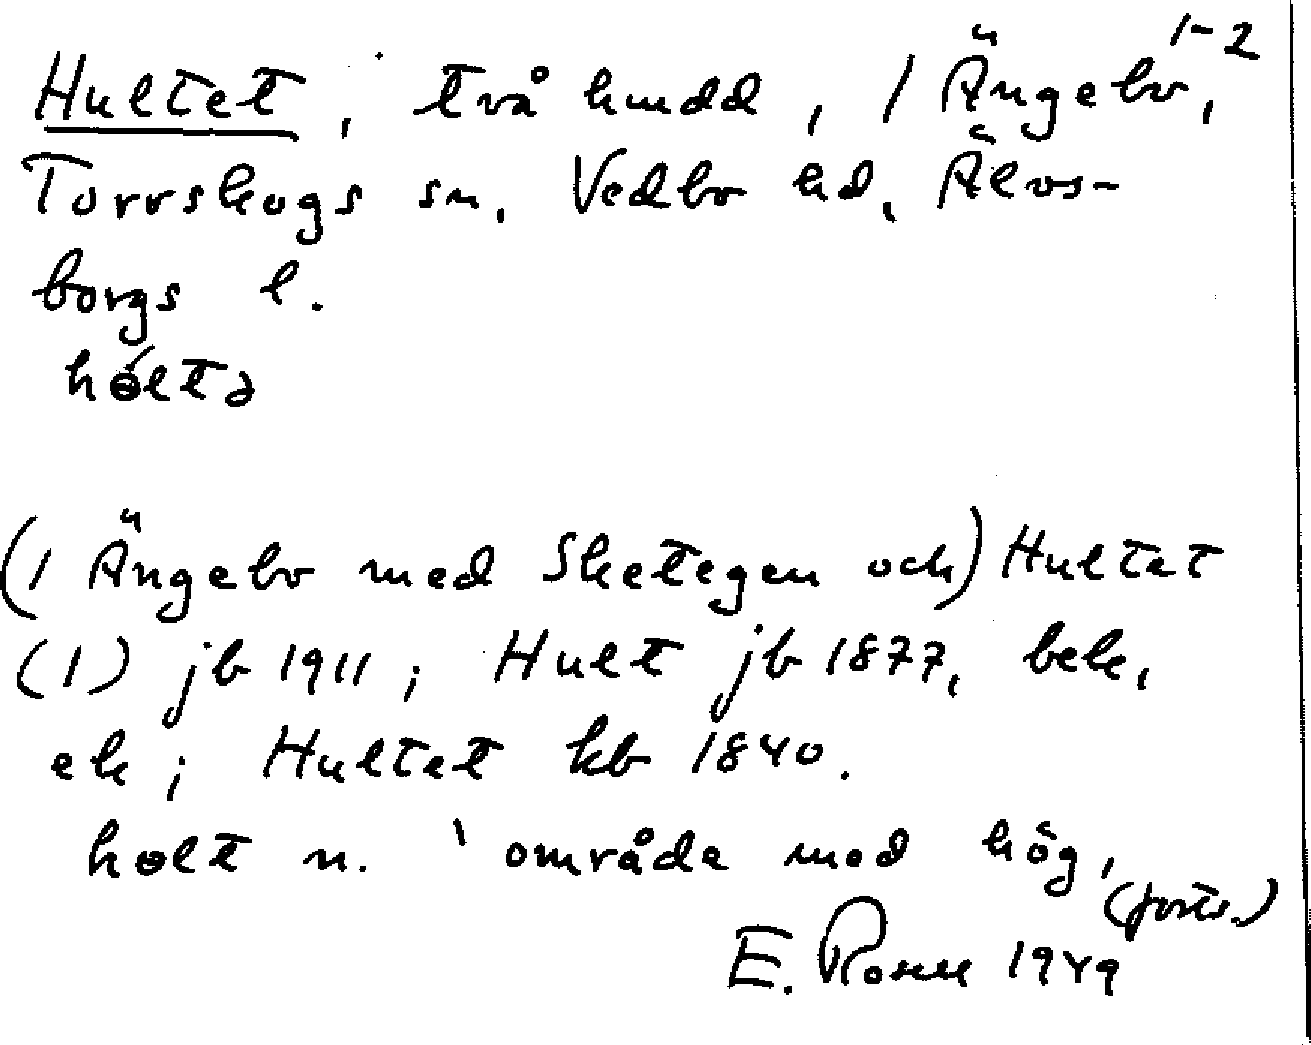 Hultet, två hmdd, 1 Ängebo¹⁻²,
Torrskogs sn. Vedbo hd, Älvs-
borgs l.
hóltə
(1 Ängebo med Sketegen och) Hultet
(1) jb 1911; Hult jb 1877, bek,
ek; Hultet kb 1840.
hɵlt n. 'område med hög,
(forts.)
E. 1949